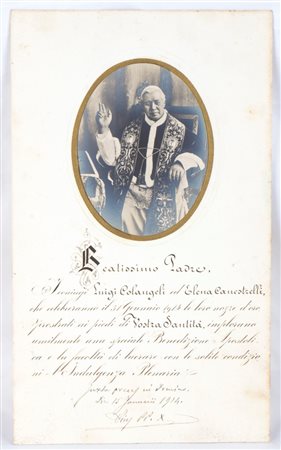 Beatissimo Padre,
I Coniugi Luigi Colangeli ed Elena Canestrelli,
che celebreranno il 31 Gennaio 1914 le loro nozze d'oro
prostrati ai piedi di Vostra Santità, implorano
umilmente una speciale Benedizione Apostoli-
ca e la facoltà di lucrare con le solite condizio-
ni l'Indulgenza Plenaria
juxta preces in Domino
Die 15 Januarii 1914.
Pius PP. X